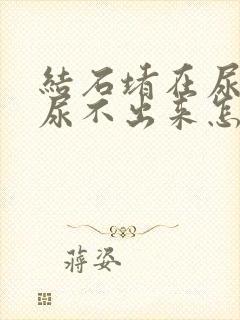 結石堵在尿
尿不出来怎
蒋姿